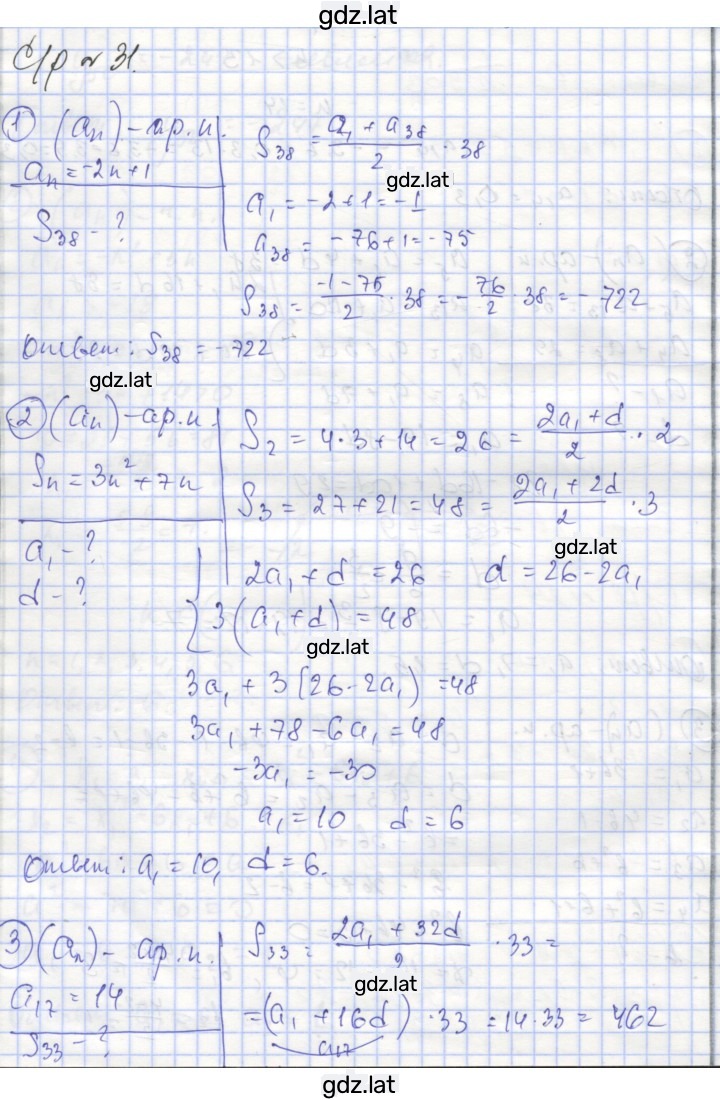 gdz.lat
С/р № 31.
① (aₙ) - ар. п.
aₙ = -2n+1
S₃₈ - ?
S₃₈ = (a₁ + a₃₈)/2 · 38
gdz.lat
a₁ = -2+1 = -1
a₃₈ = -76+1 = -75
S₃₈ = (-1-75)/2 · 38 = -76/2 · 38 = -722
Ответ: S₃₈ = -722
gdz.lat
② (aₙ) - ар. п.
Sₙ = 3n² + 7n
a₁ - ?
d - ?
S₂ = 4·3+14 = 26 = (2a₁+d)/2 · 2
S₃ = 27+21 = 48 = (2a₁+2d)/2 · 3
gdz.lat
{ 2a₁+d = 26 d = 26-2a₁
3(a₁+d) = 48
gdz.lat
3a₁ + 3(26-2a₁) = 48
3a₁ + 78 - 6a₁ = 48
-3a₁ = -30
a₁ = 10 d = 6
Ответ: a₁ = 10, d = 6.
③ (aₙ) - ар. п.
a₁₇ = 14
S₃₃ - ?
S₃₃ = (2a₁ + 32d)/2 · 33 =
gdz.lat
= (a₁ + 16d) · 33 = 14·33 = 462
a₁₇
gdz.lat